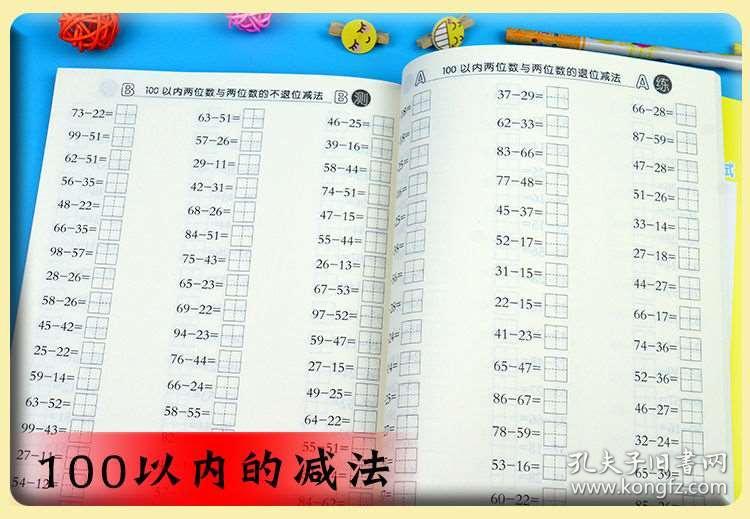 B 100以内两位数与两位数的不退位减法 B 测
73-22=
99-51=
62-51=
56-35=
48-22=
66-35=
98-57=
28-26=
58-26=
45-42=
25-22=
59-14=
99-43=
27-11=
54-12=
63-51=
57-26=
29-11=
42-31=
68-26=
84-51=
75-43=
65-23=
69-22=
94-23=
76-44=
66-24=
58-55=
46-25=
39-16=
58-44=
74-51=
47-15=
55-44=
26-13=
67-53=
97-52=
59-47=
27-15=
49-25=
64-22=
55-51=
A 100以内两位数与两位数的退位减法 A 练
37-29=
62-33=
83-66=
77-48=
45-37=
52-17=
31-15=
22-15=
41-23=
65-47=
86-67=
78-59=
53-16=
60-22=
66-28=
87-59=
47-28=
51-26=
33-14=
27-18=
44-28=
66-17=
74-36=
52-36=
46-27=
32-24=
65-39=
100以内的减法
孔夫子旧书网
www.kongfz.com